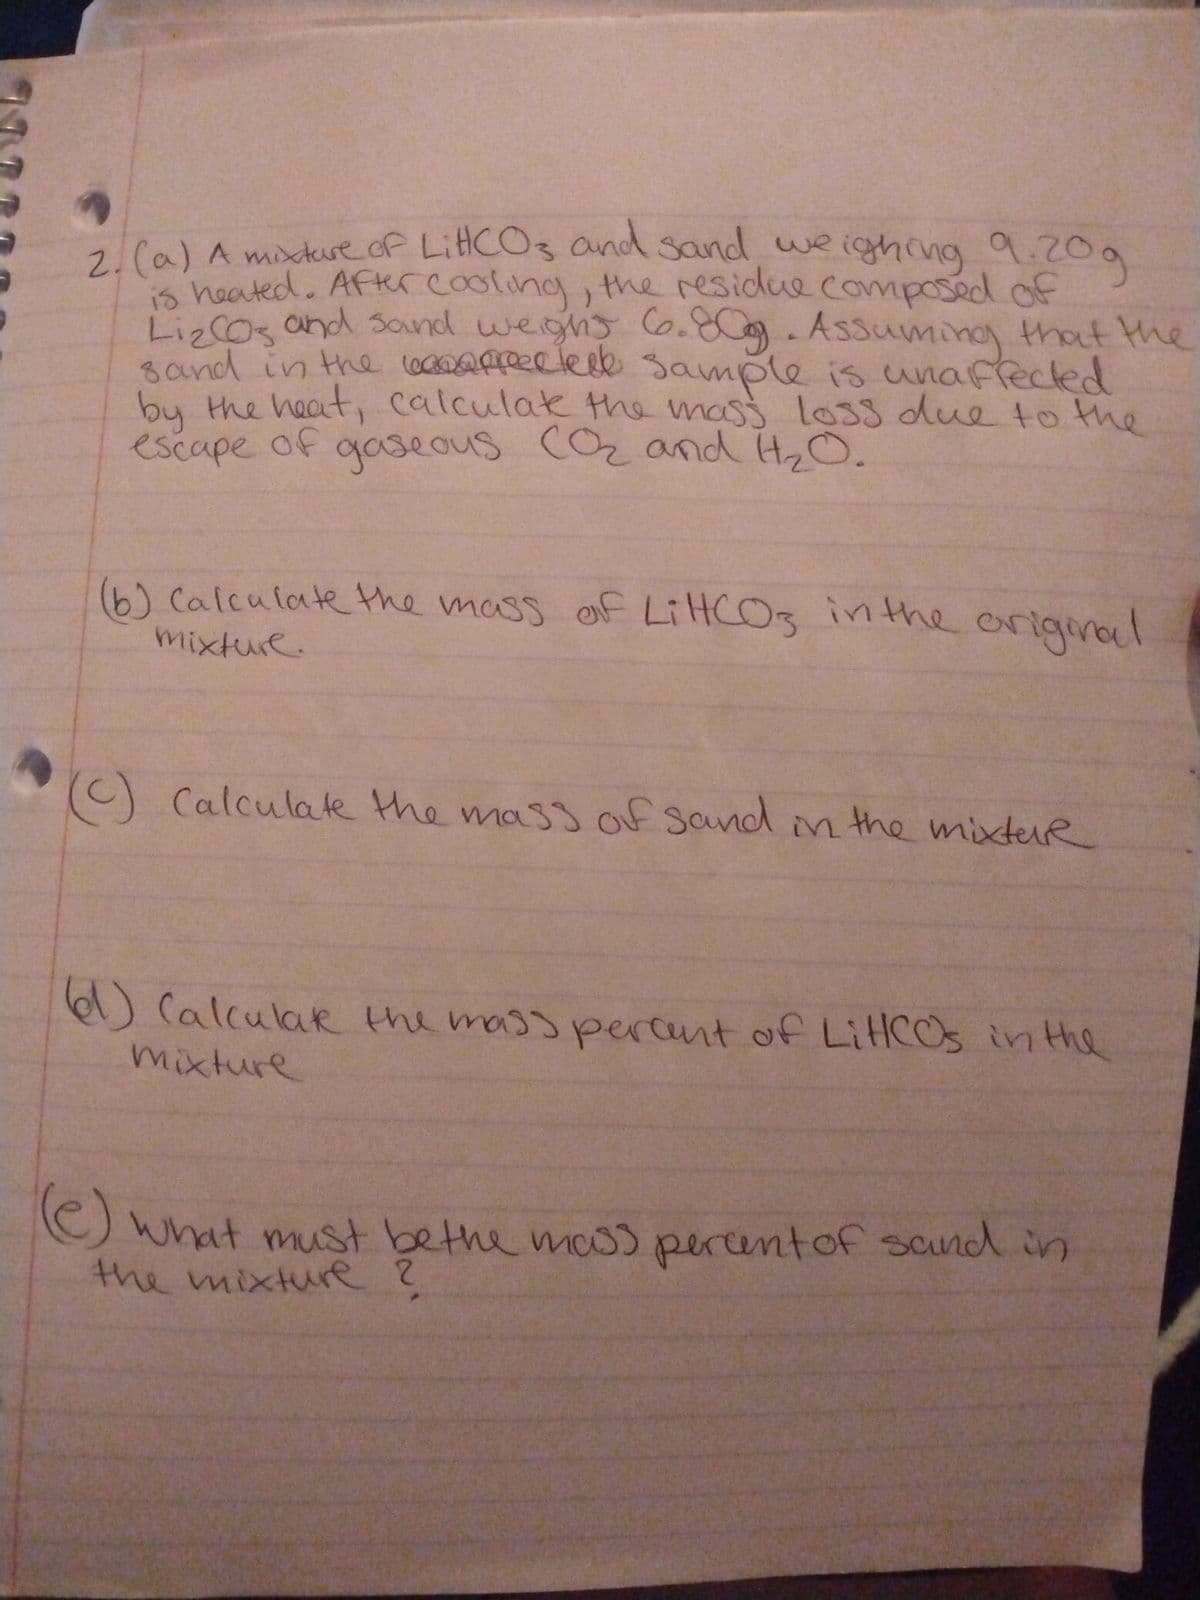 2. (a) A mixture of LiHCO3 and sand weighing 9.20g
is heated. After cooling, the residue composed of
Li2CO3 and sand weighs 6.80g. Assuming that the
sand in the sample is unaffected
by the heat, calculate the mass loss due to the
escape of gaseous CO2 and H2O.
(b) Calculate the mass of LiHCO3 in the original
mixture.
(c) Calculate the mass of sand in the mixture
(d) Calculate the mass percent of LiHCO3 in the
mixture
(e) What must be the mass percent of sand in
the mixture ?